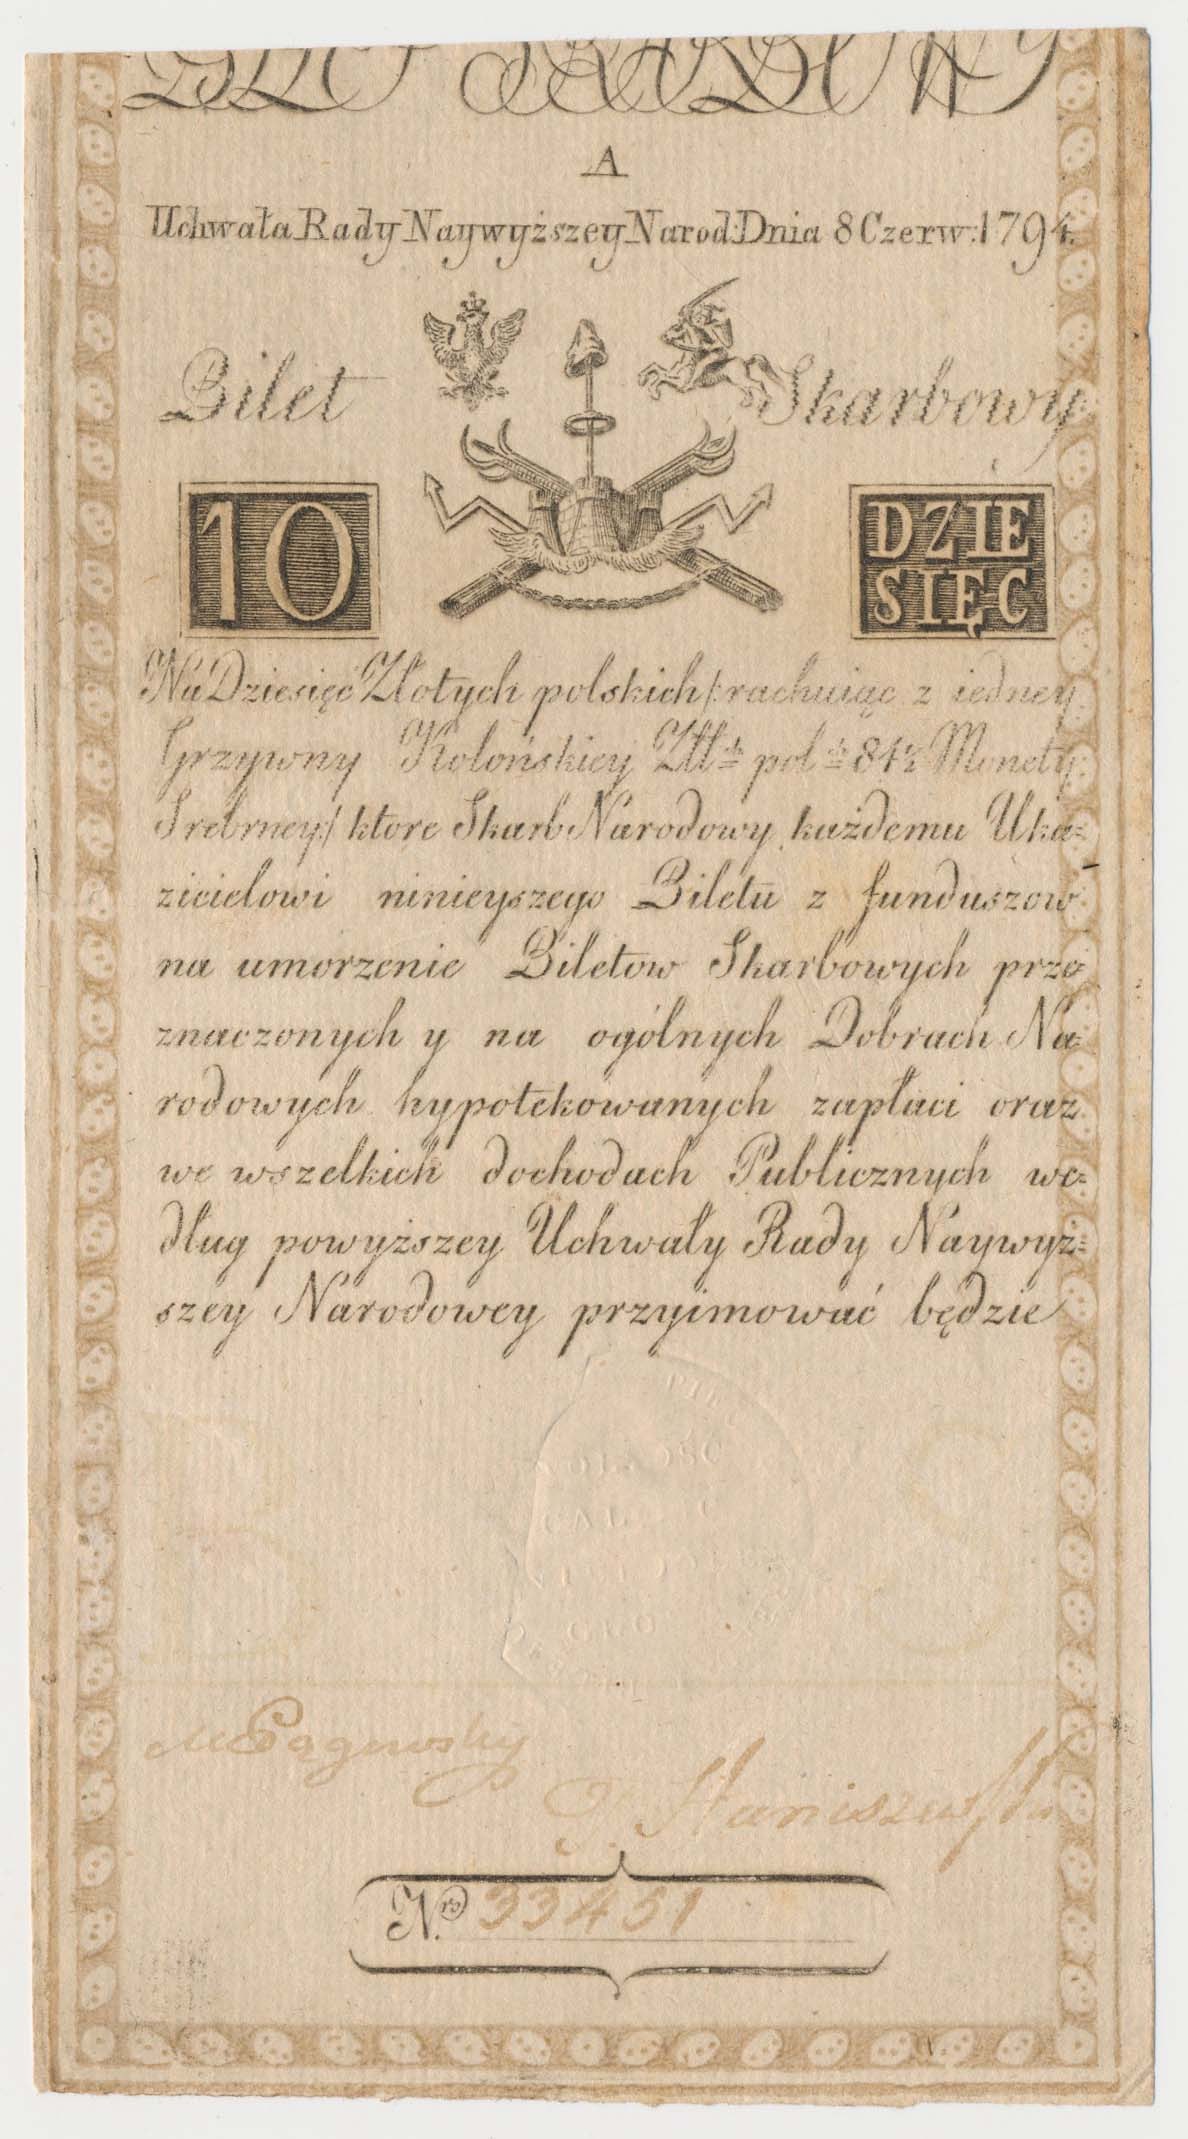 BILET SKARBOWY
A
Uchwała Rady Naywyższey Narod: Dnia 8 Czerw: 1794.
Bilet Skarbowy
10 DZIE
SIĘC
Na Dziesięć Złotych polskich /: rachuiąc z iedney
Grzywny Kolońskiey Złł^ch pol^ch 84½ Monety
Srebrney :/ ktore Skarb Narodowy każdemu Uka=
zicielowi ninieyszego Biletu z funduszow
na umorzenie Biletow Skarbowych prze=
znaczonych y na ogólnych Dobrach Na=
rodowych hypotekowanych zapłaci oraz
we wszelkich dochodach Publicznych we=
dług powyższey Uchwały Rady Naywyż=
szey Narodowey przyimować będzie
N.ro 33451